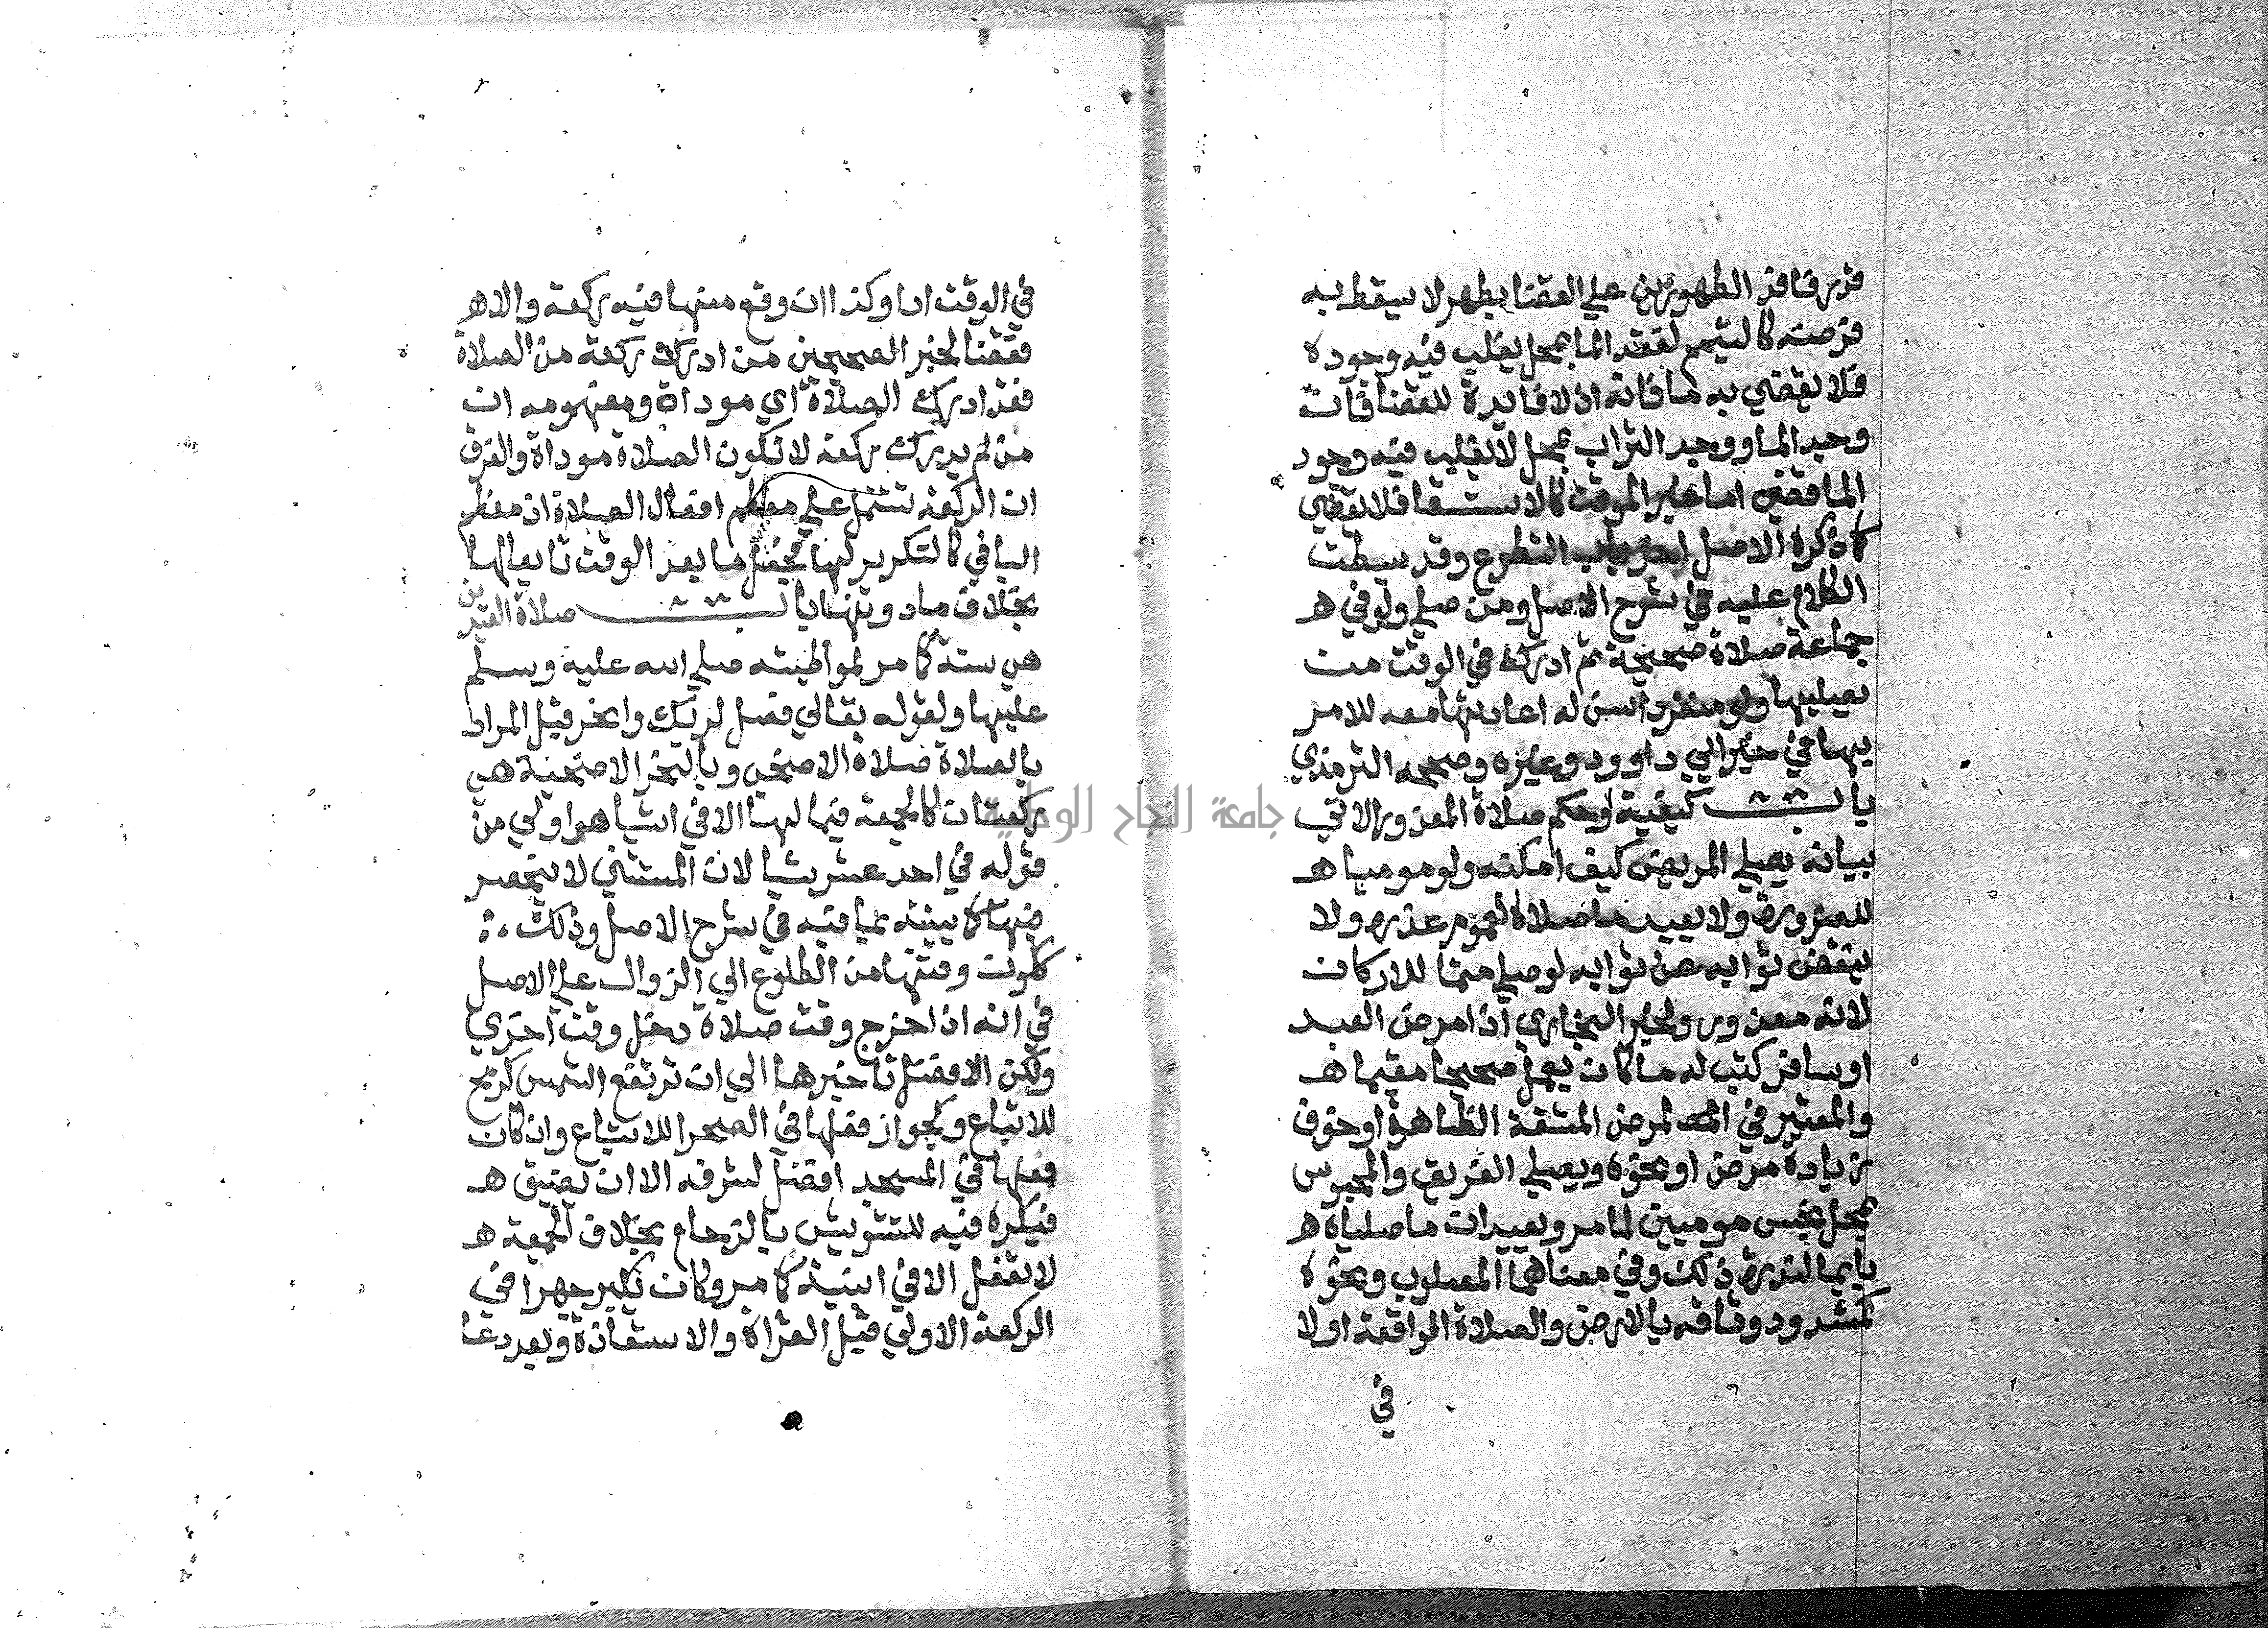 قدر فاقد الطهورين علي القضا بطهر لا يسقط به
فرضه كالتيمم لفقد الما بمحل يغلب فيه وجوده
فلا يقضي به ما فاته اذ لا فايدة للقضا فان
وجد الما او وجد التراب بمحل لا يغلب فيه وجود
الما قضي اما غير الموقت كالاستسقا فلا يقضي
كما ذكره الاصل اخر باب التطوع وقد بسطت
الكلام عليه في شرح الاصل ومن صلي ولو في ه
جماعة صلاة صحيحة ثم ادرك في الوقت من
يصليها ولو منفردا سن له اعادتها معه للامر
بها في خبر ابي داوود وغيره وصححه الترمذي
باب كيفية وحكم صلاة المعذور الاتي
بيانه يصلي المريض كيف امكنه ولو موميا ه
للضرورة ولا يعيد ما صلاه لعموم عذره ولا
ينقص ثوابه عن ثوابه لو صلي متما للاركان
لانه معذور ولخبر البخاري اذا مرض العبد
او سافر كتب له ما كان يعمل صحيحا مقيما ه
والمعتبر في المرض المشقة الظاهرة او خوف
زيادة مرض او نحوه ويصلي الغريق والمحبوس
بمحل نجس موميين لما مر ويعيدان ما صلياه ه
بايما لندرة ذلك وفي معناهما المصلوب ونحوه
كمشدود وثاقه بالارض والصلاة الواقعة اولا
في
في الوقت ادا وكذا ان وقع منها فيه ركعة والا ه
فقضا لخبر الصحيحين من ادرك ركعة من الصلاة
فقد ادرك الصلاة اي موداة ومفهومه ان
من لم يدرك ركعة لا تكون الصلاة موداة والفرق
ان الركعة تشتمل علي معظم افعال الصلاة اذ معظم
الباقي كالتكرير لها فجعل ما بعد الوقت تابعا لها
بخلاف ما دونها باب صلاة العيدين
هي سنة كما مر لمواظبته صلي الله عليه وسلم
عليها ولقوله تعالي فصل لربك وانحر قيل المراد
بالصلاة صلاة الاضحي وبالنحر الاضحية هي
ركعتان كالجمعة فيما لها الا في اشيا هو اولي من
قوله في احد عشر شيا لان المستثني لا ينحصر
فيها كما بينته بما فيه في شرح الاصل وذلك
ككون وقتها من الطلوع الي الزوال علي الاصل
في انه اذا خرج وقت صلاة دخل وقت اخري
ولكن الافضل تاخيرها الي ان ترتفع الشمس كرمح
للاتباع وكجواز فعلها في الصحرا للاتباع وان كان
فعلها في المسجد افضل لشرفه الا ان يضيق ه
فيكره فيه للتشويش بالزحام بخلاف الجمعة ه
لا تفعل الا في ابنية كما مر وكان يكبر جهرا في
الركعة الاولي قبل القراة والاستعاذة وبعد دعا
جامعة النجاح الوطنية